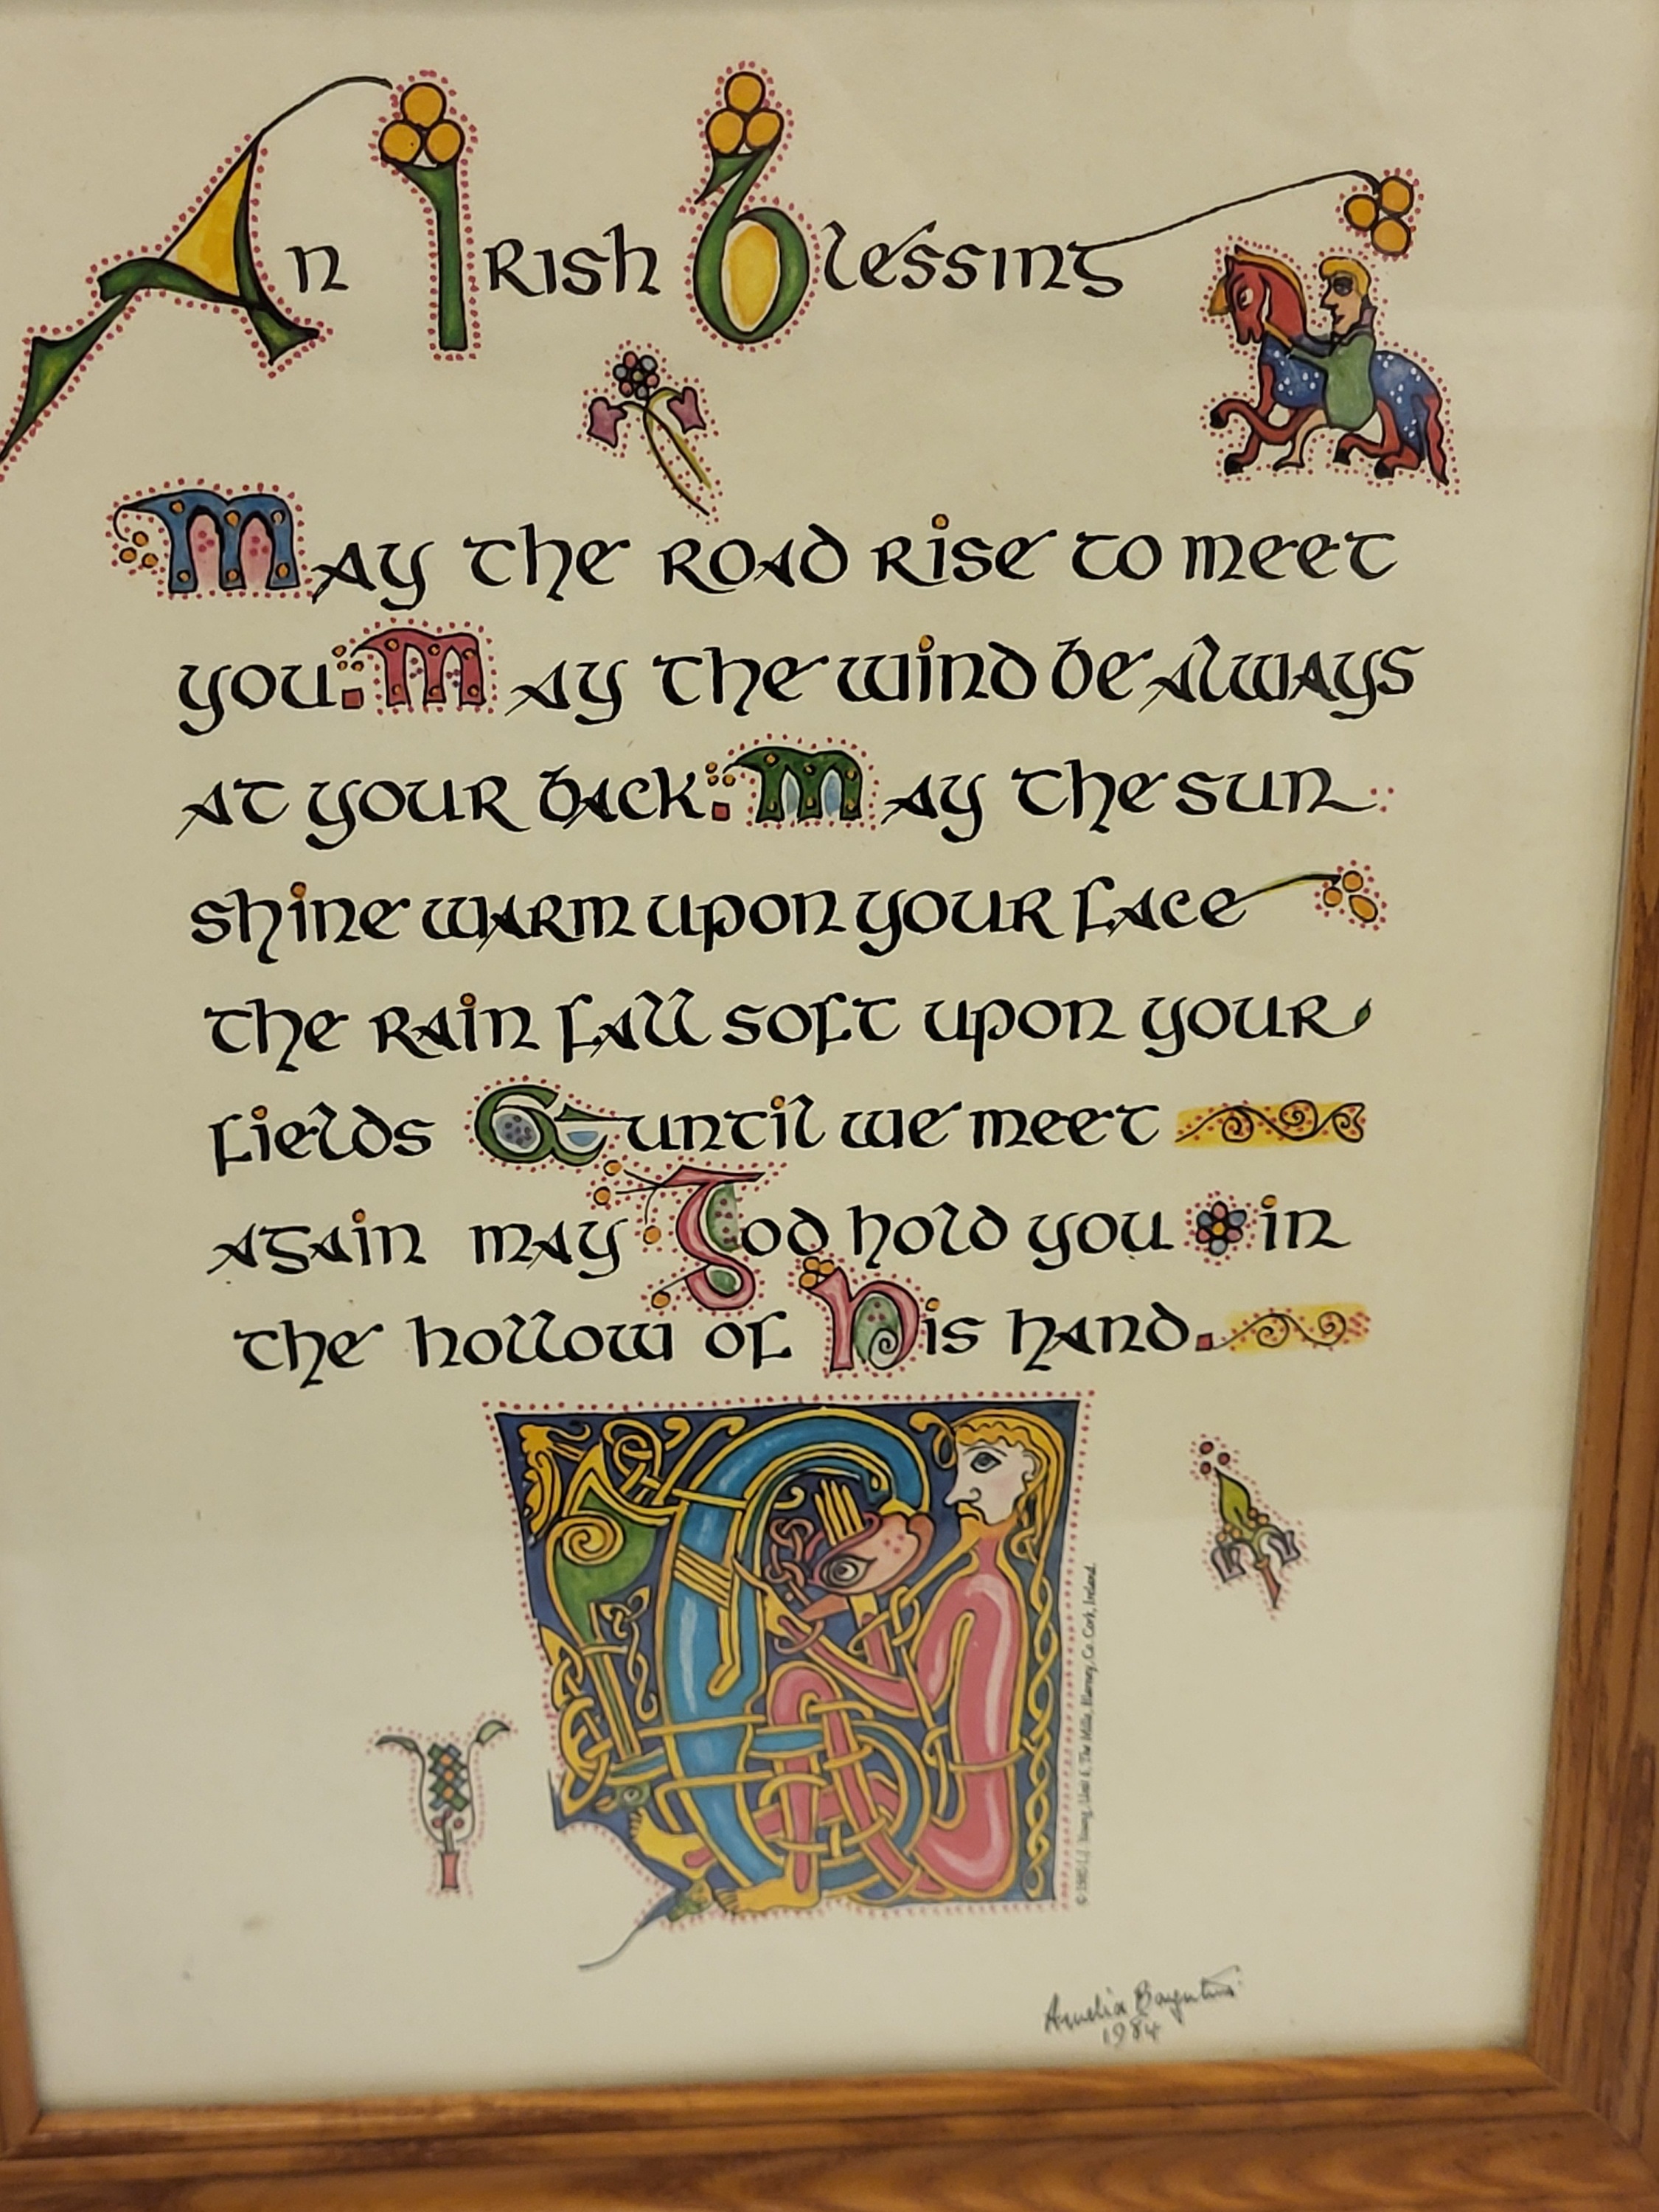 An Irish Blessing
May the road rise to meet
you. May the wind be always
at your back. May the sun
shine warm upon your face
the rain fall soft upon your
fields & until we meet
again may God hold you in
the hollow of His hand.
Unit 6, The Mills, Blarney, Co. Cork, Ireland.
Amelia
1984